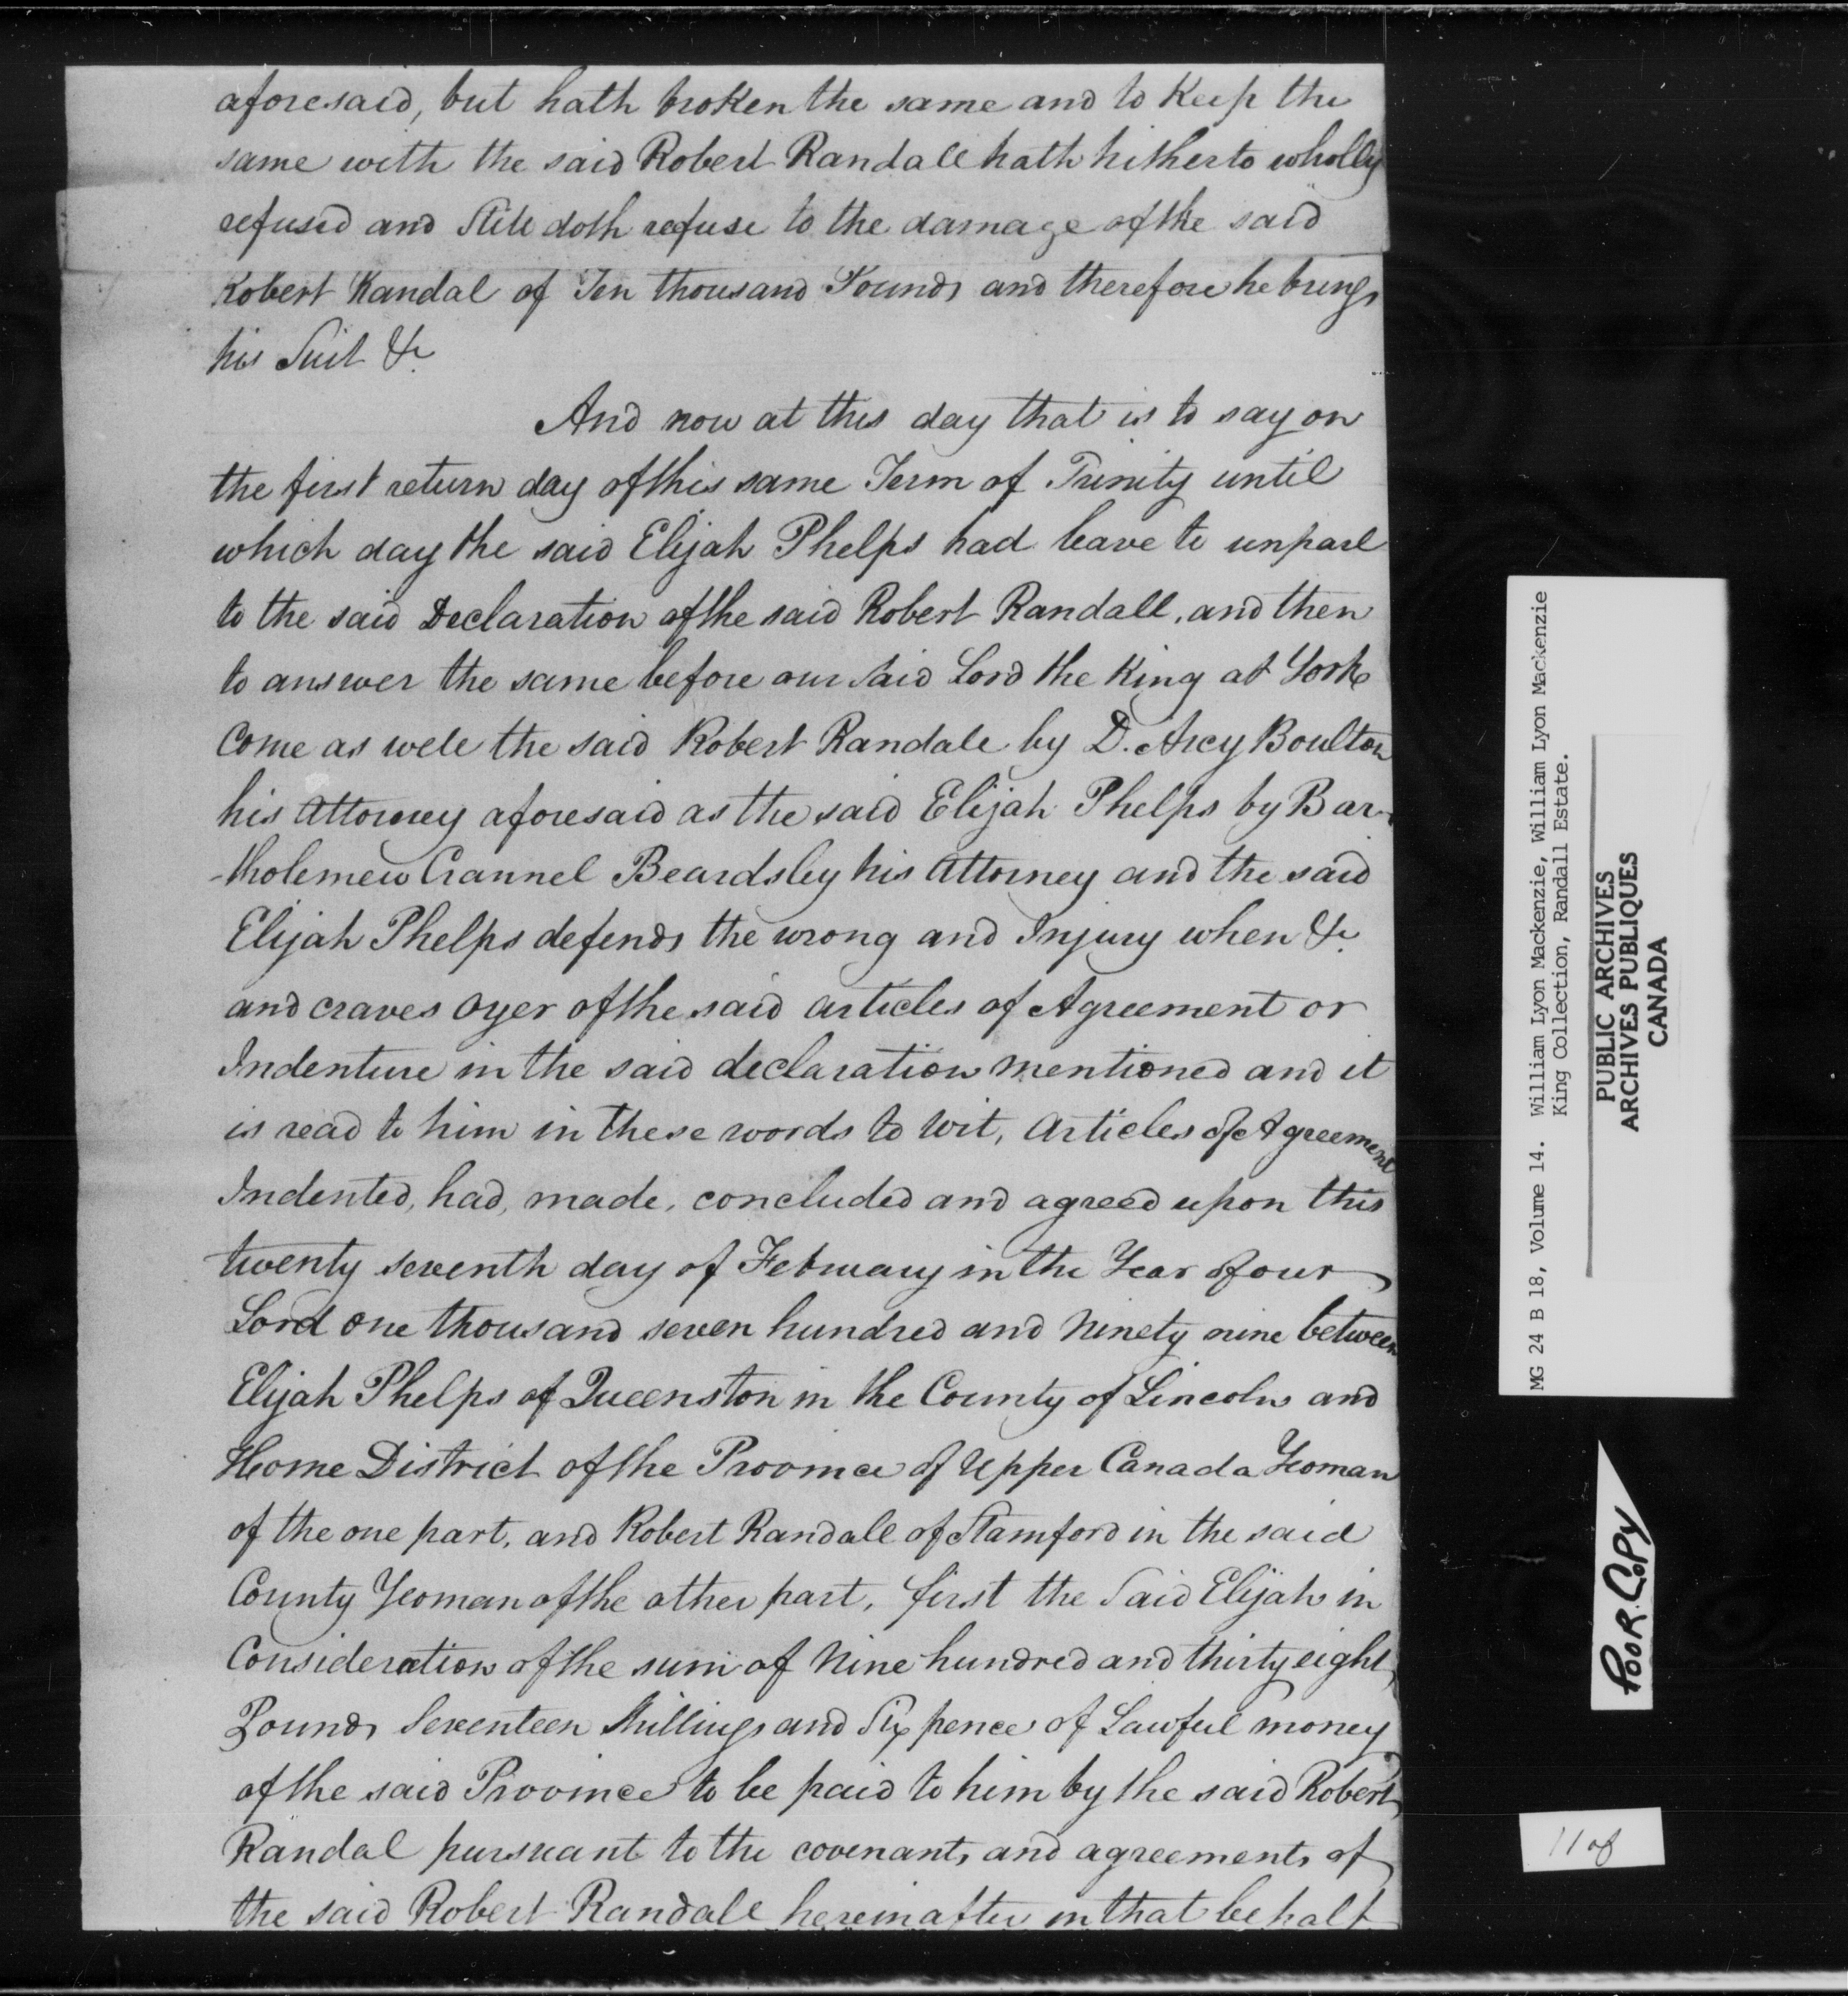 aforesaid, but hath broken the same and to Keep the
same with the said Robert Randall hath hitherto wholly
refused and Still doth refuse to the damage of the said
Robert Randal of Ten thousand Pounds and therefore he brings
his Suit &c.
And now at this day that is to say on
the first return day of this same Term of Trinity until
which day the said Elijah Phelps had leave to imparl
to the said Declaration of the said Robert Randall, and then
to answer the same before our said Lord the King at York
Come as well the said Robert Randall by D. Arcy Boulton
his Attorney aforesaid as the said Elijah Phelps by Bar-
-tholemew Crannel Beardsley his Attorney and the said
Elijah Phelps defends the wrong and Injury when &c.
and craves Oyer of the said articles of Agreement or
Indenture in the said declaration mentioned and it
is read to him in these words to wit, Articles of Agreement
Indented, had, made, concluded and agreed upon this
twenty seventh day of February in the Year of our
Lord one thousand seven hundred and Ninety nine between
Elijah Phelps of Queenston in the County of Lincoln and
Home District of the Province of Upper Canada Yeoman
of the one part, and Robert Randall of Stamford in the said
County Yeoman of the other part, first the Said Elijah in
Consideration of the sum of Nine hundred and thirty eight
Pounds Seventeen Shillings and Six pence of Lawful money
of the said Province to be paid to him by the said Robert
Randal pursuant to the covenants and agreements of
the said Robert Randall hereinafter in that behalf
MG 24 B 18, Volume 14. William Lyon Mackenzie, William Lyon Mackenzie
King Collection, Randall Estate.
PUBLIC ARCHIVES
ARCHIVES PUBLIQUES
CANADA
POOR COPY